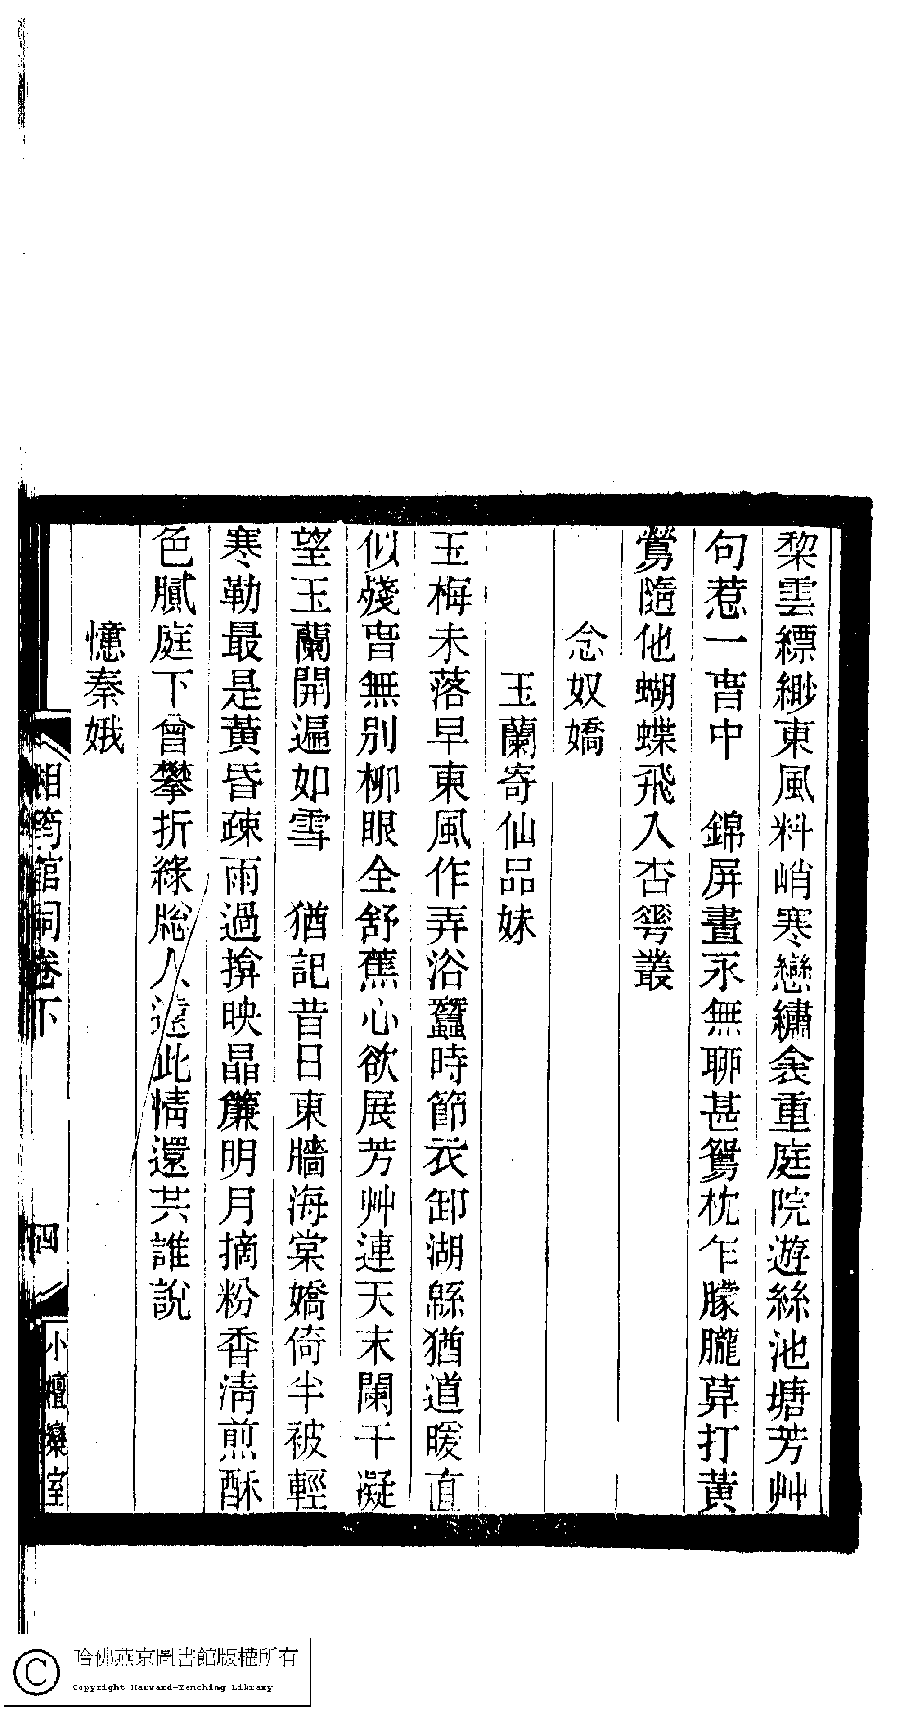 棃雲縹緲東風料峭寒戀繡衾重庭院遊絲池塘芳艸
句惹一春中　錦屏晝永無聊甚鴛枕乍朦朧莫打黃
鶯隨他蝴蝶飛入杏花叢
念奴嬌
玉蘭寄仙品妹
玉梅未落早東風作弄浴蠶時節衣卸湖緜猶道暖直
似殘春無別柳眼全舒蕉心欲展芳艸連天末闌干凝
望玉蘭開遍如雪　猶記昔日東牆海棠嬌倚半被輕
寒勒最是黃昏疎雨過揜映晶簾明月摘粉香清煎酥
色膩庭下曾攀折綠牕人遠此情還共誰說
憶秦娥
湘筠館詞卷下
四
小檀欒室
哈佛燕京圖書館版權所有
Copyright Harvard-Yenching Library